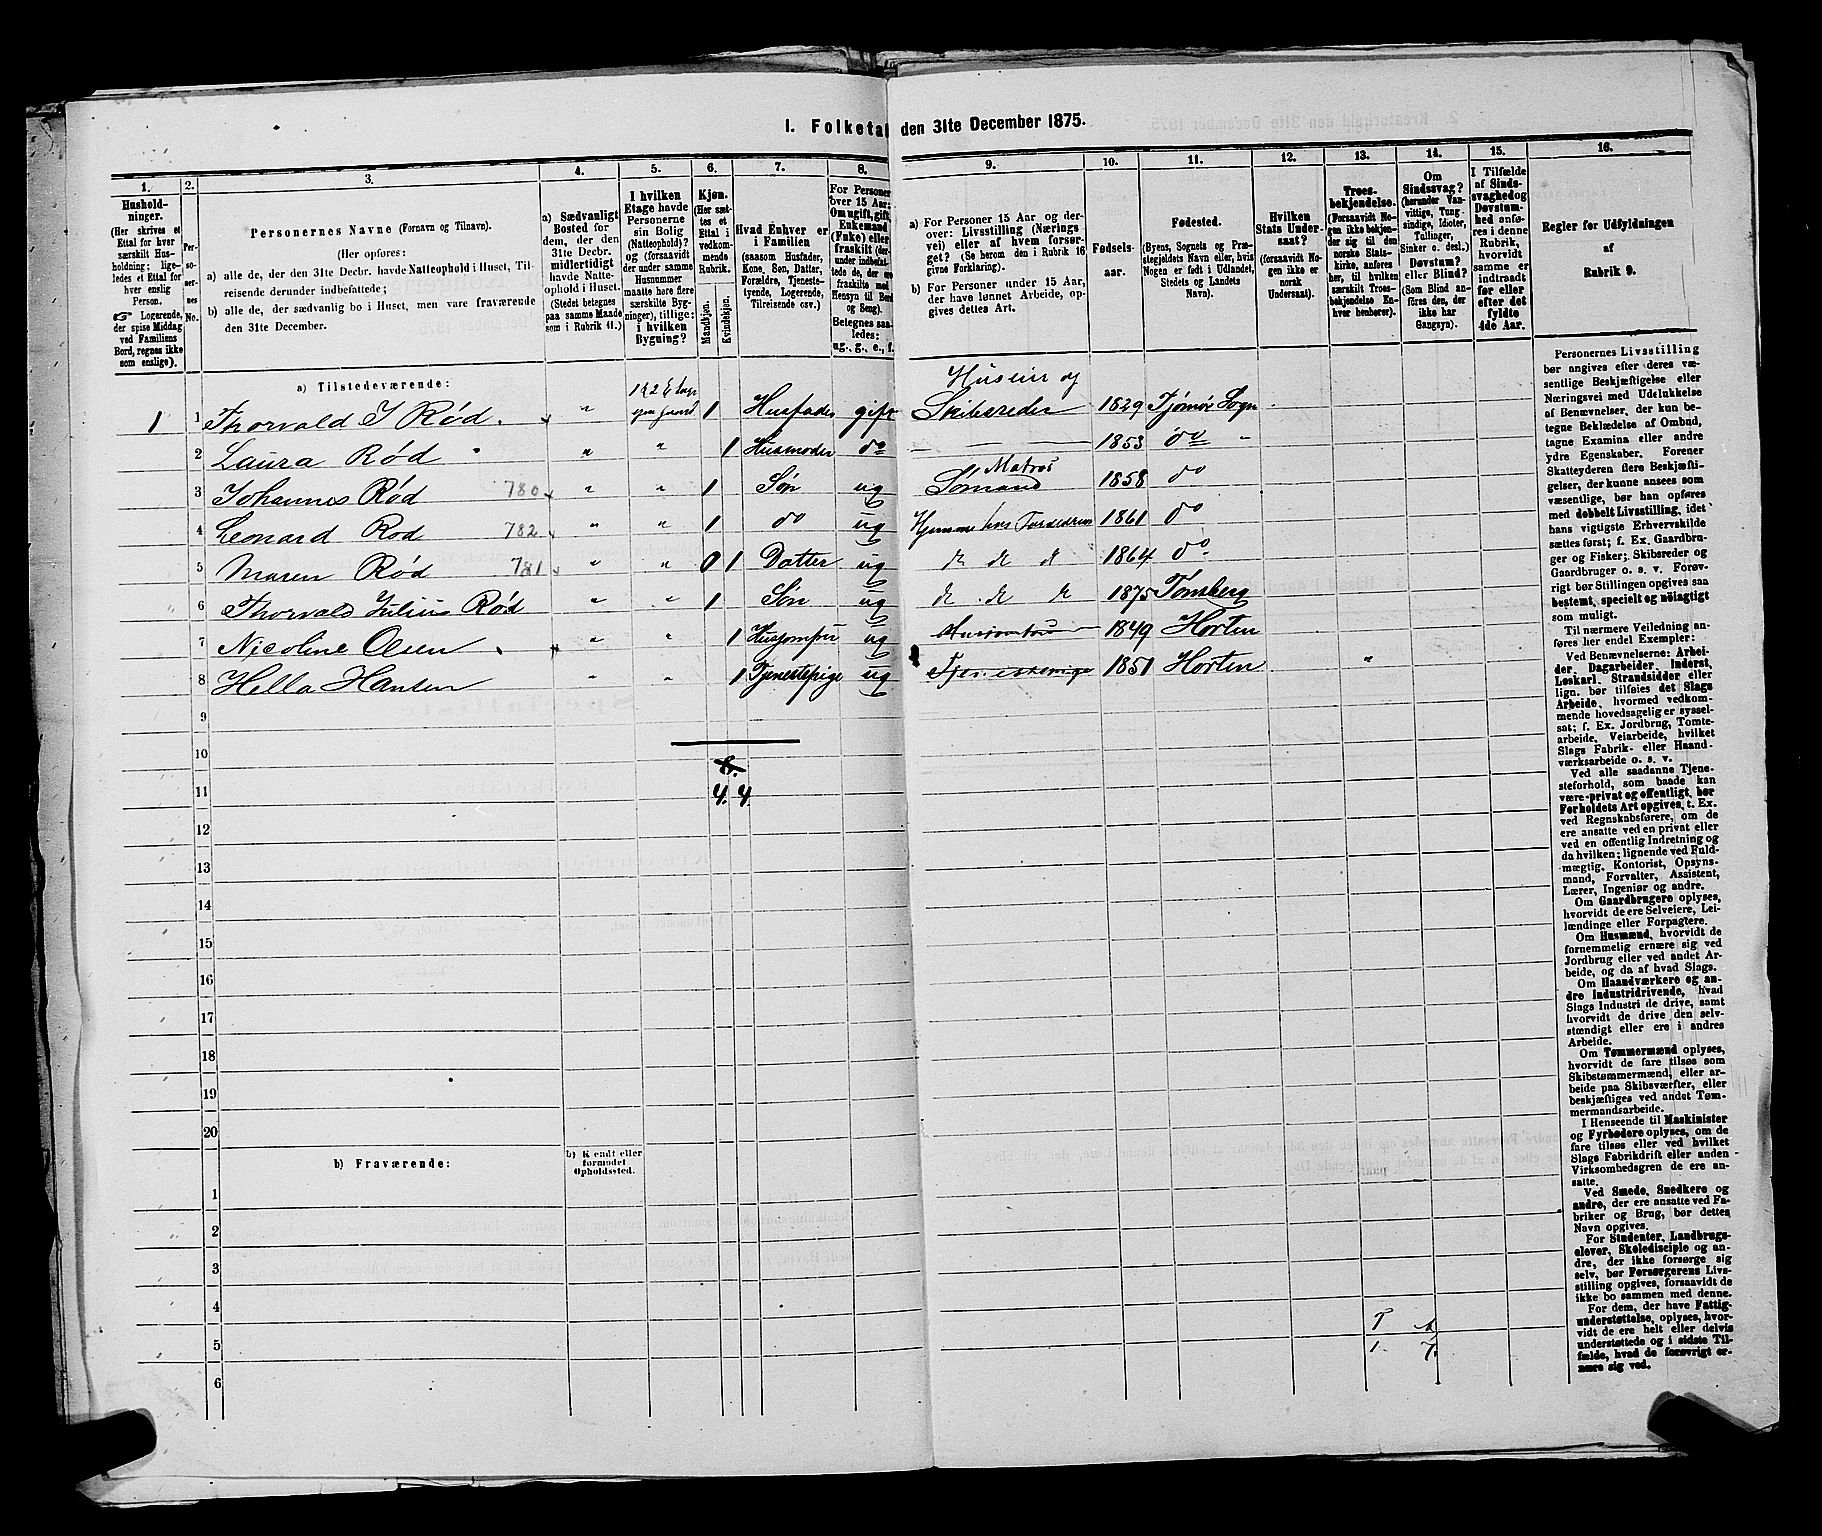 I. Folketal den 31te December 1875.
1.
2.
3.
4.
5.
6.
7.
8.
9.
10.
11.
12.
13.
14.
15.
16.
Hushold-
ninger.
(Her skrives et
Ettal for hver
særskilt Hus-
holdning; lige-
ledes et Ettal for
hver enslig
Person.
☞ Logerende,
der spise Middag
ved Familiens
Bord, regnes ikke
som enslige).
Per-
so-
ner-
nes
No.
Personernes Navne (Fornavn og Tilnavn).
(Her opføres:
a) alle de, der den 31te Decbr. havde Natteophold i Huset, Til-
reisende derunder indbefattede;
b) alle de, der sædvanlig bo i Huset, men vare fraværende
den 31te December.
a) Sædvanligt
Bosted for
dem, der den
31te Decbr.
midlertidigt
havde Natte-
ophold i Huset.
(Stedet betegnes
paa samme Maade
som i Rubrik 11.)
I hvilken
Etage havde
Personerne
sin Bolig
(Natteophold)?
og (forsaavidt
der under samme
Husnummer
maatte høre flere
særskilte Byg-
ninger), tillige:
i hvilken
Bygning?
Kjøn.
(Her sæt-
tes et
Ettal i
vedkom-
mende
Rubrik.
Mandkjøn.
Kvindekjøn.
Hvad Enhver er
i Familien
(saasom Husfader,
Kone, Søn, Datter,
Forældre, Tjeneste-
tyende, Logerende,
Tilreisende osv.)
For Personer
over 15 Aar:
Om ugift, gift,
Enkemand
(Enke) eller
fraskilt (der-
under indbefat-
tede de, der ere
fraskilte med
Hensyn til Bord
og Seng).
Betegnes saa-
ledes:
ug., g., e., f.
a) For Personer 15 Aar og der-
over: Livsstilling (Nærings-
vei) eller af hvem forsør-
get? (Se herom den i Rubrik 16
givne Forklaring).
b) For Personer under 15 Aar,
der have lønnet Arbeide, op-
gives dettes Art.
Fødsels-
aar.
Fødested.
(Byens, Sognets og Præ-
stegjeldets Navn eller, hvis
Nogen er født i Udlandet,
Stedets og Landets
Navn).
Hvilken
Stats Under-
saat?
(forsaavidt No-
gen ikke er
norsk
Undersaat).
Troes-
bekjendelse.
(Forsaavidt No-
gen ikke bekjen-
der sig til den
norske Stats-
kirke, anføres
her, til hvilken
særskilt Troes-
bekjendelse En-
hver henhører).
Om
Sindssvag?
(herunder Van-
vittige, Tung-
sindige, Idioter,
Tullinger,
Sinker o. desl.)
Døvstum?
eller Blind?
(Som Blind an-
føres den, der
ikke har
Gangsyn).
I Tilfælde
af Sinds-
svaghed og
Døvstum-
hed anfø-
res i denne
Rubrik,
hvorvidt
samme er
indtraadt
før eller
efter det
fyldte
4de Aar.
Regler for Udfyldningen
af
Rubrik 9.
a) Tilstedeværende:
1 1 Thorvald J Rød. " 1 & 2 Etage 1 Husfader gift Huseier og Skibsreder 1829 Tjømø Sogn
2 Laura Rød " " 1 Husmoder do 1853 do "
3 Johannes Rød 780 " " 1 Søn ug Matros Sømand 1858 do
4 Leonard Rød 782 " " 1 do ug Hjemme hos Forældrene 1861 do
5 Maren Rød 781 " " 0 1 Datter ug d d d 1864 do
6 Thorvald Julius Rød " " 1 Søn ug d d d 1875 Tønsberg
7 Nicoline Olsen " " 1 Husjomfru ug 1849 Horten
8 Hella Hansen " " 1 Tjenestepige ug 1851 Horten "
9
10
11 4. 4
12
13
14
15
16
17
18
19
20
b) Fraværende:
b) Kjendt eller
formodet
Opholdssted.
1
2
3
4
5
6
T
1. 7.
Personernes Livsstilling
bør angives efter deres væ-
sentlige Beskjæftigelse eller
Næringsvei med Udelukkelse
af Benævnelser, der kun be-
tegne Beklædelse af Ombud,
tagne Examina eller andre
ydre Egenskaber. Forener
Skatteyderen flere Beskjæfti-
gelser, der kunne ansees som
væsentlige, bør han opføres
med dobbelt Livsstilling, idet
hans vigtigste Erhvervskilde
sættes først; f. Ex. Gaardbru-
ger og Fisker; Skibsreder og
Gaardbruger o. s. v. Forøv-
rigt bør Stillingen opgives saa
bestemt, specielt og nöiagtigt
som muligt.
Til nærmere Veiledning an-
føres her endel Exempler:
Ved Benævnelserne: Arbei-
der, Dagarbeider, Inderst,
Løskarl, Strandsidder eller
lign. bør tilføies det Slags
Arbeide, hvormed vedkom-
mende hovedsagelig er syssel-
sat; f. Ex. Jordbrug, Tomte-
arbeide, Veiarbeide, hvilket
Slags Fabrik- eller Haand-
værksarbeide o. s. v.
Ved alle saadanne Tjene-
steforhold, som baade kan
være privat og offentligt, bør
Forholdets Art opgives, t. Ex.
ved Regnskabsførere, om de
ere ansatte ved en privat eller
ved en offentlig Indretning og
da hvilken; lignende ved Fuld-
mægtig, Kontorist, Opsyns-
mand, Forvalter, Assistent,
Lærer, Ingeniør og andre.
Om Gaardbrugere oplyses,
hvorvidt de ere Selveiere, Lei-
lændinge eller Forpagtere.
Om Husmænd, hvorvidt de
fornemmelig ernære sig ved
Jordbrug eller ved andet Ar-
beide, og da af hvad Slags.
Om Haandværkere og an-
dre Industridrivende, hvad
Slags Industri de drive, samt
hvorvidt de drive den selv-
stændigt eller ere i andres
Arbeide.
Om Tømmermænd oplyses,
hvorvidt de fare tilsøs som
Skibstømmermænd, eller ar-
beide paa Skibsværfter, eller
beskjæftiges ved andet Tøm-
mermandsarbeide.
I Henseende til Maskinister
og Fyrbødere oplyses, om de
fare tilsøs eller ved hvilket
Slags Fabrikdrift eller anden
Virksomhedsgren de ere an-
satte.
Ved Smede, Snedkere og
andre, der ere ansatte ved Fa-
briker og Brug, bør dettes
Navn opgives.
For Studenter, Landbrugs-
elever, Skoledisciple og an-
dre, der ikke forsørge sig
selv, bør Forsørgerens Livs-
stilling opgives, forsaavidt de
ikke bo sammen med denne.
For dem, der have Fattig-
understøttelse, oplyses, hvor-
vidt de ere helt eller delvis
understøttede og i sidste Til-
fælde, hvad de forøvrigt er-
nære sig ved.